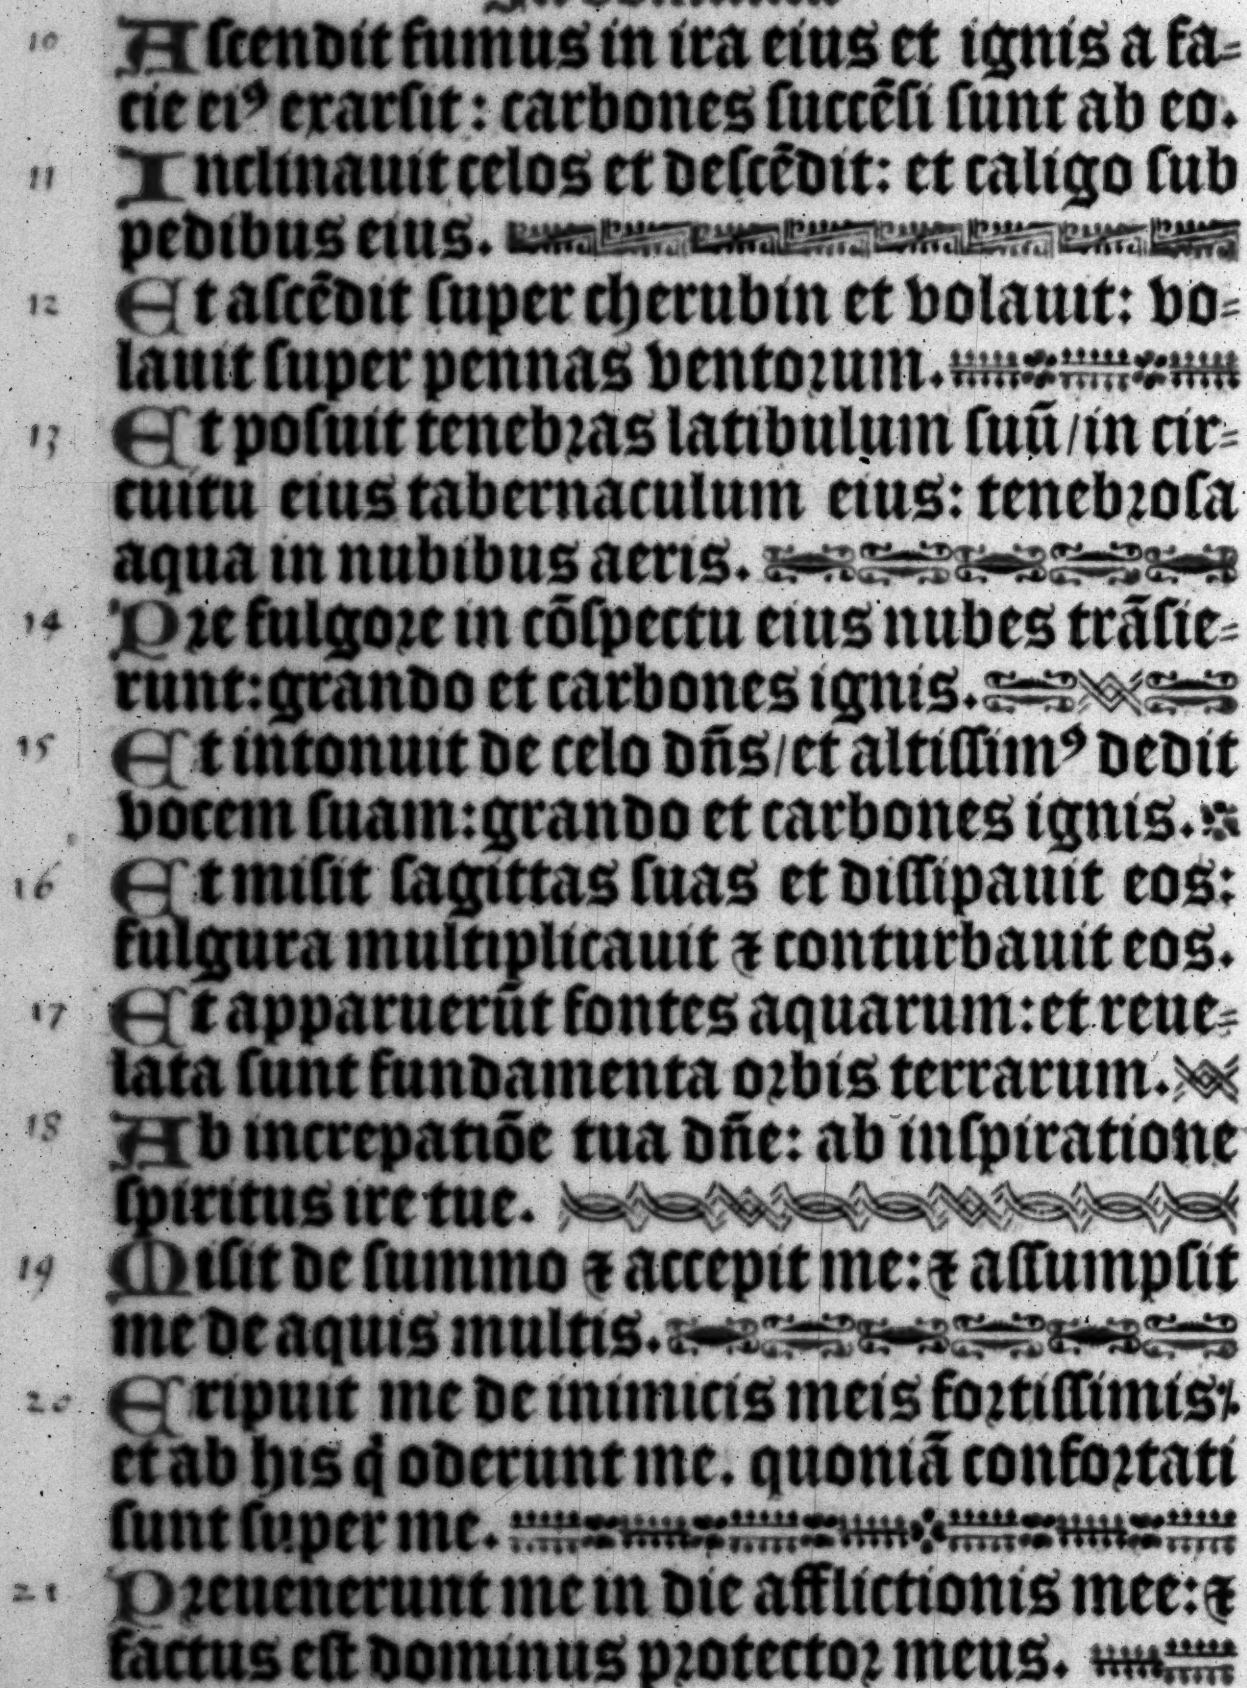 10 Aſcendit fumus in ira eius et ignis a fa=
cie eiꝰ exarſit: carbones ſuccēſi ſunt ab eo.
11 Inclinauit celos et deſcēdit: et caligo ſub
pedibus eius.
12 Et aſcēdit ſuper cherubin et volauit: vo=
lauit ſuper pennas ventoꝛum.
13 Et poſuit tenebꝛas latibulum ſuū/in cir=
cuitu eius tabernaculum eius: tenebꝛoſa
aqua in nubibus aeris.
14 Pꝛe fulgoꝛe in cōſpectu eius nubes trāſie=
runt:grando et carbones ignis.
15 Et intonuit de celo dn̄s/et altiſſimꝰ dedit
vocem ſuam:grando et carbones ignis.
16 Et miſit ſagittas ſuas et diſſipauit eos:
fulgura multiplicauit ⁊ conturbauit eos.
17 Et apparuerūt fontes aquarum:et reue=
lata ſunt fundamenta oꝛbis terrarum.
18 Ab increpatiōe tua dn̄e: ab inſpiratione
ſpiritus ire tue.
19 Miſit de ſummo ⁊ accepit me:⁊ aſſumpſit
me de aquis multis.
20 Eripuit me de inimicis meis foꝛtiſſimis/.
et ab his qͥ oderunt me. quoniā confoꝛtati
ſunt ſuper me.
21 Pꝛeuenerunt me in die afflictionis mee:⁊
factus eſt dominus pꝛotectoꝛ meus.